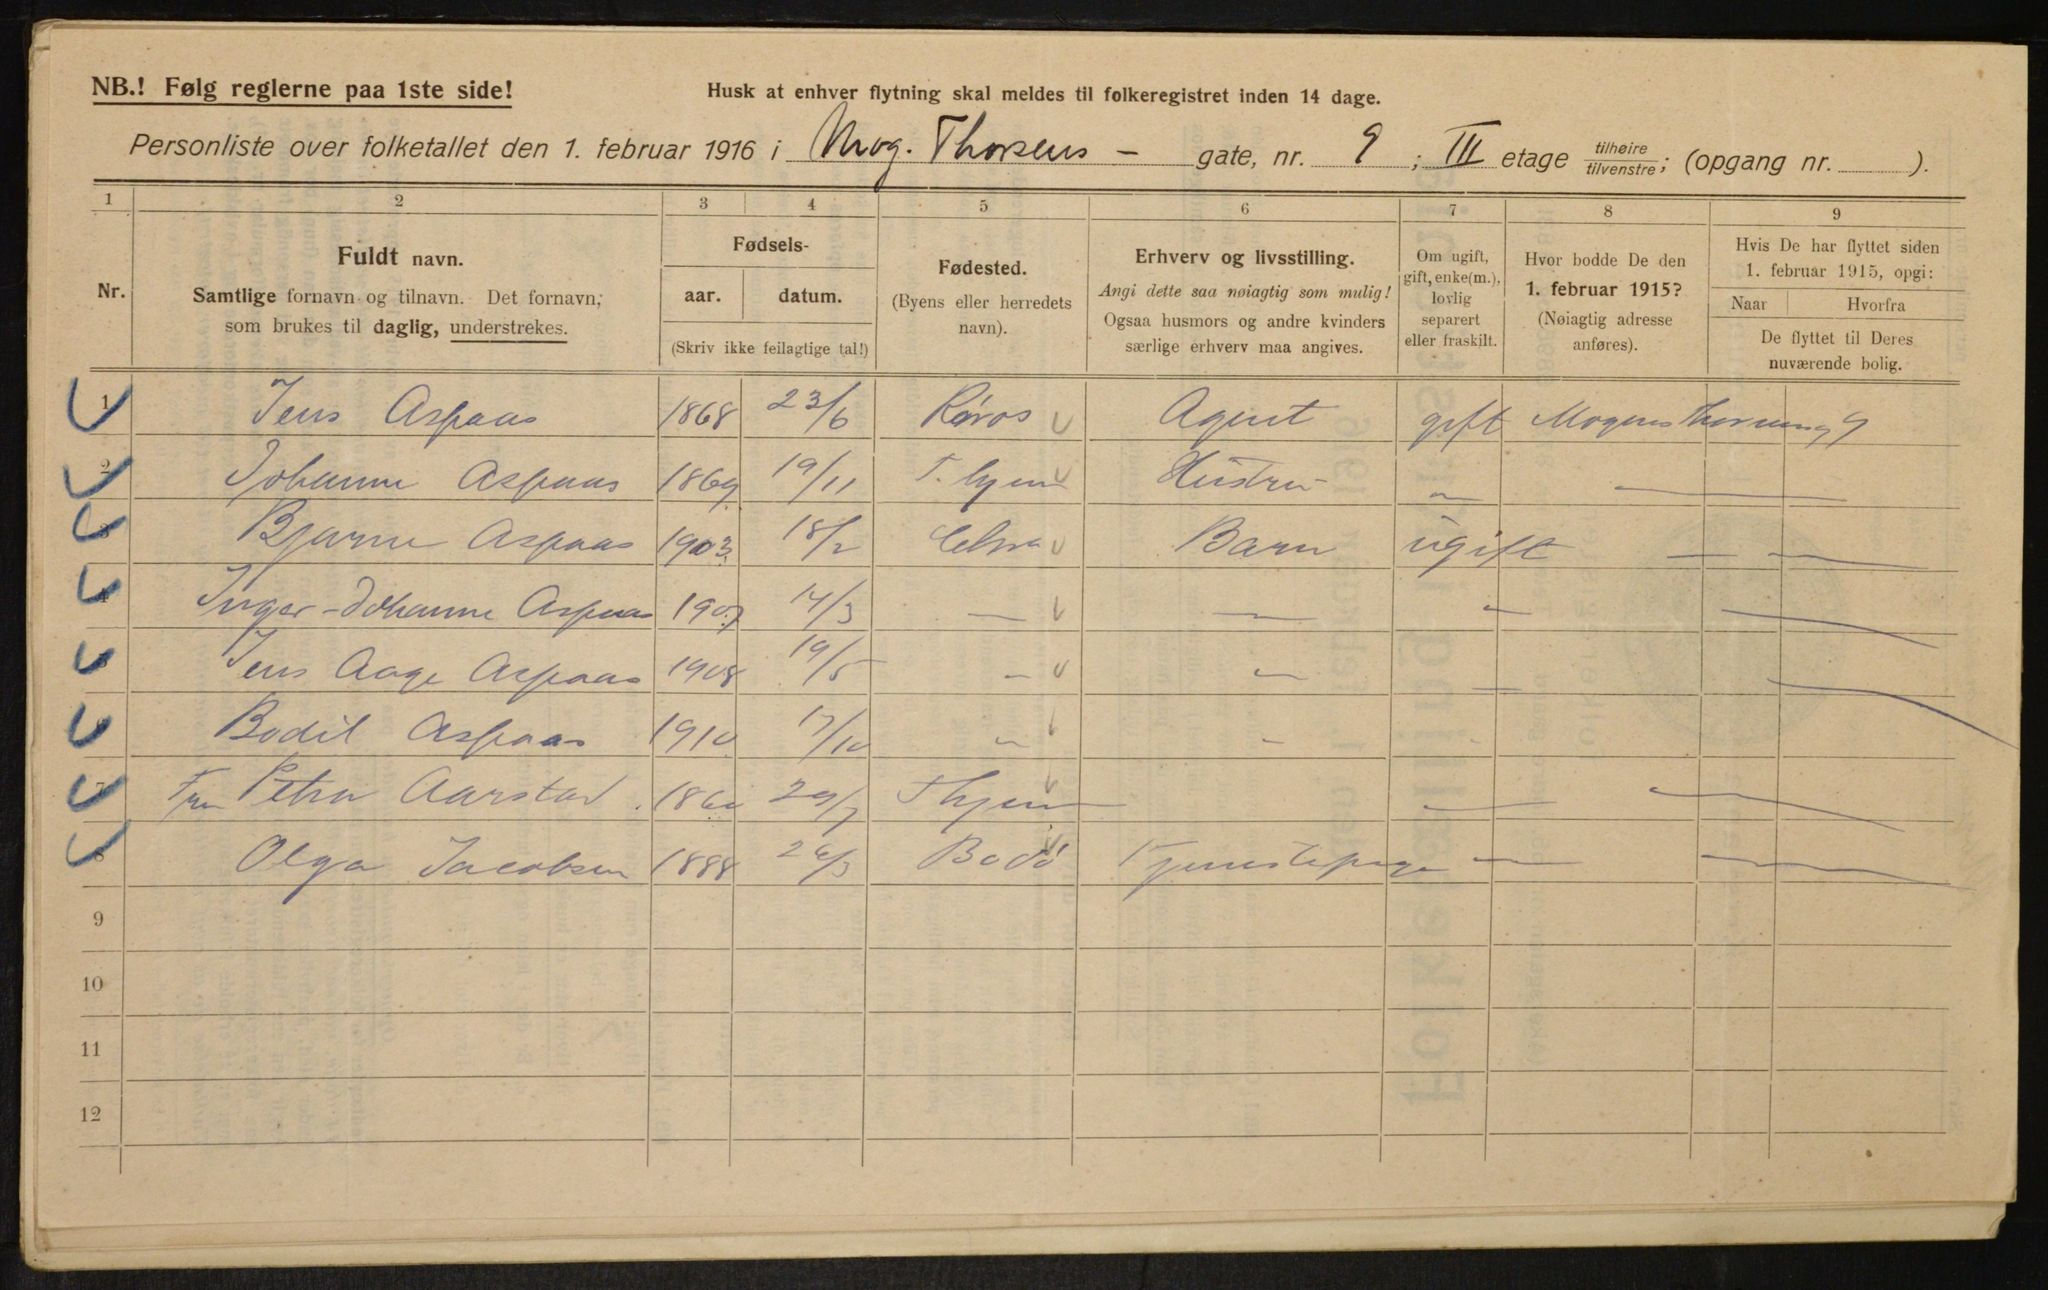 NB.! Følg reglerne paa 1ste side!
Husk at enhver flytning skal meldes til folkeregistret inden 14 dage.
Personliste over folketallet den 1. februar 1916 i Mog. Thorsens – gate, nr. 9 ; III etage tilhøire/tilvenstre; (opgang nr. ).
1 2 3 4 5 6 7 8 9
Nr.
Fuldt navn.
Samtlige fornavn og tilnavn. Det fornavn,
som brukes til daglig, understrekes.
Fødsels-
aar. datum.
(Skriv ikke feilagtige tal!)
Fødested.
(Byens eller herredets
navn).
Erhverv og livsstilling.
Angi dette saa nøiagtig som mulig!
Ogsaa husmors og andre kvinders
særlige erhverv maa angives.
Om ugift,
gift, enke(m.),
lovlig
separert
eller fraskilt.
Hvor bodde De den
1. februar 1915?
(Nøiagtig adresse
anføres).
Hvis De har flyttet siden
1. februar 1915, opgi:
Naar Hvorfra
De flyttet til Deres
nuværende bolig.
1 Jens Aspaas 1868 23/6 Røros Agent gift Mogens 9
2 Johanne Aspaas 1869 19/11 T.hjem Hustru — —
3 Bjarne Aspaas 1903 18/2 Barn ugift — —
4 Inger-Johanne Aspaas 1907 14/3 — — — —
5 Jens Aage Aspaas 1908 19/5 — — — —
6 Bodil Aspaas 1910 17/10 — — -
7 Fru Petra Aarstad. 1860 29/7 Thjem — —
8 Olga Jacobsen 1888 26/3 Bodø Tjenestepige — —
9
10
11
12